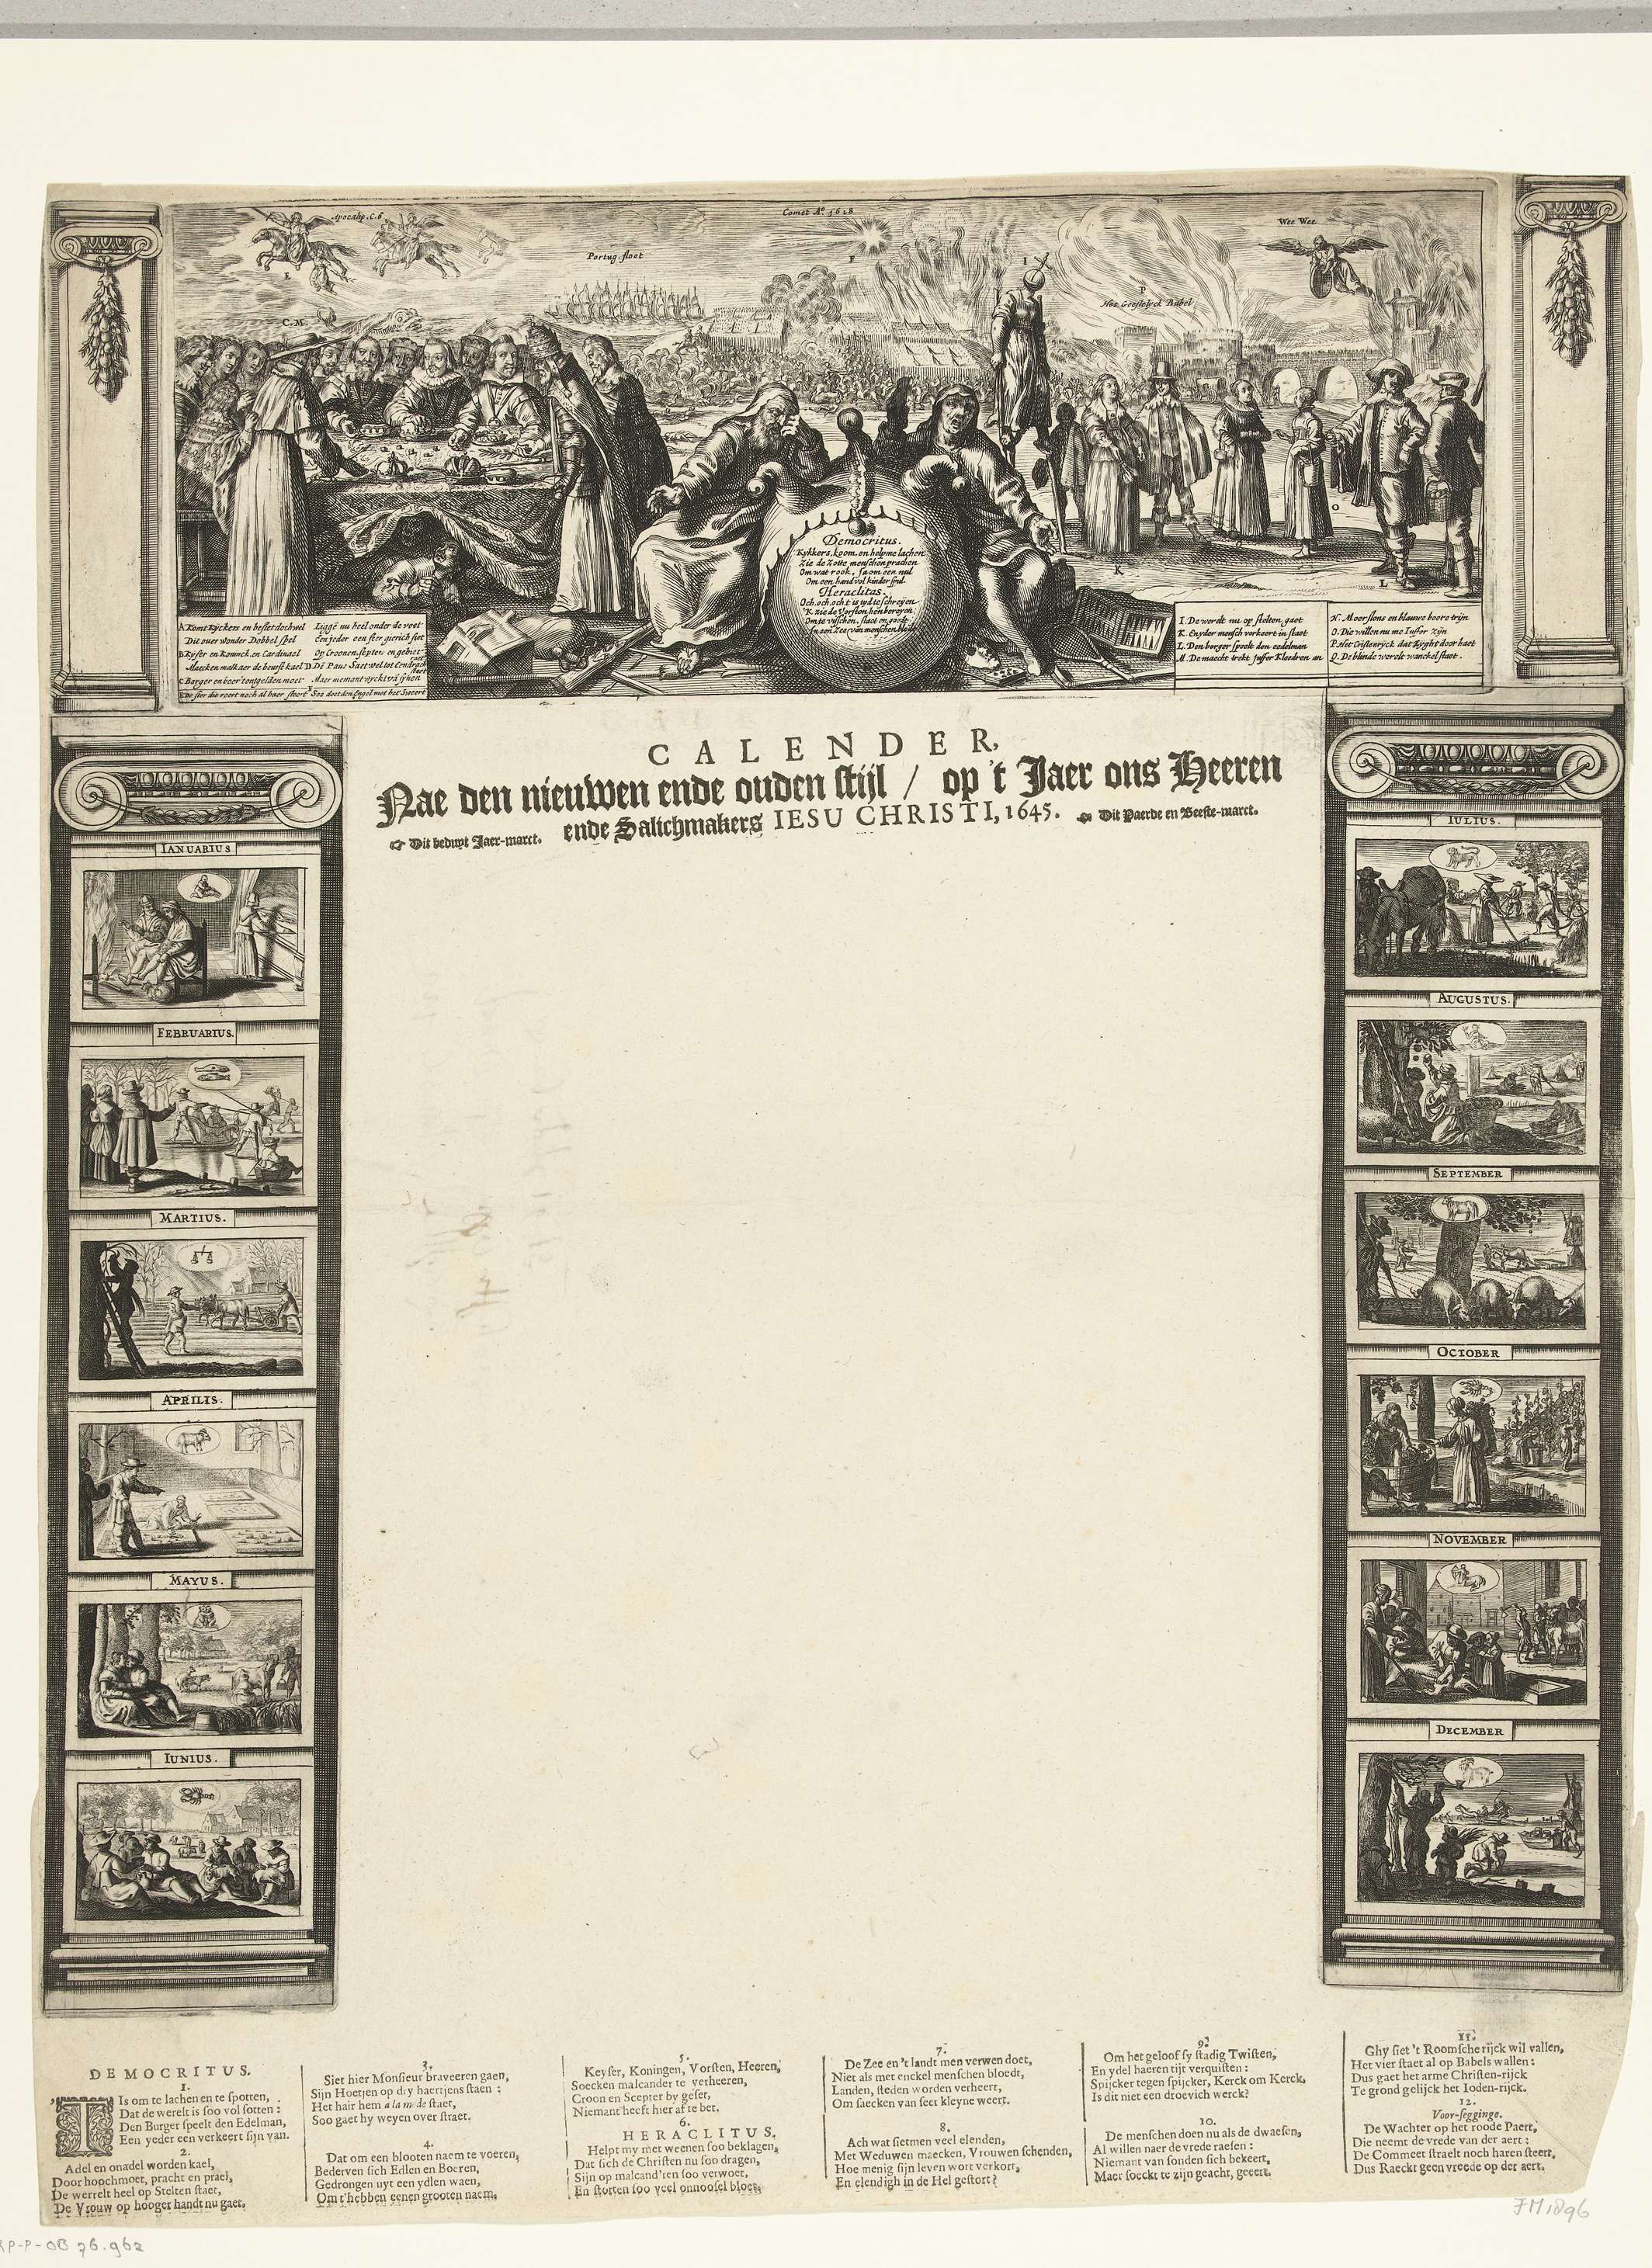 Apocalip. C. 6
Comet Aº. 1618
Wee Wee
Portug. floot
E
F
I
P
Het Geestelyck Babel
C. M.
O
K
L
Democritus.
Kykkers, koom, en help me lachen
Zie de Zotte menschen prachen
Om wat rook, Ja om een nul
Om een handvol kinder spul.
Heraclitus.
Och, och, och t is tyd te schreyen
'K zie de Vorsten hen bereyen
Om te visschen, slaet en
In een Zee van menschen bloet
A Komt kyckers en beslet doch wel
Dit over wonder Dobbel spel
B Kyser en Koninck, en Cardinael
Maecken malkaer de beurse kael
C Borger en boer t'ontgelden moet
Liggē nu heel onder de voet
En jeder een seer gierich siet
Op Croonen, septer, en gebiet
D De Paus Saet wel tot Eendracht
Maer niemant
Soo doet den Engel met het Sweert
I. De werelt nu op stelten gaet
K. En yder mensch verkeert in staet
L. Den borger speelt den eedelman
M. De maecht trekt Juffer Kleedren an
N. Moerslons en blauwe boere trijn
O. Die willen nu me Juffer zijn
P. Het Cristenryck dat kyght door haet
Q. De blinde werelt wanckel staet.
CALENDER,
Nae den nieuwen ende ouden stijl / op 't Jaer ons Heeren
ende Salichmakers IESU CHRISTI, 1645.
☞ Dit beduyt Jaer-marct.
Dit Paerde en Beeste-marct.
IANUARIUS
FEBRUARIUS.
MARTIUS.
APRILIS.
MAYUS.
IUNIUS.
IULIUS.
AUGUSTUS.
SEPTEMBER
OCTOBER
NOVEMBER
DECEMBER
DEMOCRITUS.
1.
'TIs om te lachen en te spotten,
Dat de werelt is soo vol sotten:
Den Burger speelt den Edelman,
Een yeder een verkeert sijn van.
2.
Adel en onadel worden kael,
Door hoochmoet, pracht en prael,
De werrelt heel op Stelten staet,
De Vrouw op hooger handt nu gaet.
3.
Siet hier Monsieur braveeren gaen,
Sijn Hoetjen op dry haertjens staen:
Het hair hem a la m de staet,
Soo gaet hy weyen over straet.
4.
Dat om een blooten naem te voeren,
Bederven sich Edlen en Boeren,
Gedrongen uyt een ydlen waen,
Om t'hebben eenen grooten naem.
5.
Keyser, Koningen, Vorsten, Heeren,
Soecken malcander te verheeren,
Croon en Scepter by geset,
Niemant heeft hier af te bet.
6.
HERACLITUS.
Helpt my met weenen soo beklagen,
Dat sich de Christen nu soo dragen,
Sijn op malcand'ren soo verwoet,
En storten soo veel onnoosel bloet.
7.
De Zee en 't landt men verwen doet,
Niet als met enckel menschen bloedt,
Landen, steden worden verheert,
Om saecken van seer kleyne weert.
8.
Ach wat sietmen veel elenden,
Met Weduwen maecken, Vrouwen schenden,
Hoe menig sijn leven wort verkort,
En elendigh in de Hel gestort?
9.
Om het geloof sy stadig Twisten,
En ydel haeren tijt verquisten:
Spijcker tegen spijcker, Kerck om Kerck,
Is dit niet een droevich werck?
10.
De menschen doen nu als de dwaesen,
Al willen naer de vrede raesen:
Niemant van sonden sich bekeert,
Maer soeckt te zijn geacht, geeert.
11.
Ghy siet 't Roomsche rijck wil vallen,
Het vier staet al op Babels wallen:
Dus gaet het arme Christen-rijck
Te grond gelijck het Ioden-rijck.
12.
Voor-segginge.
De Wachter op het roode Paert,
Die neemt de vrede van der aert:
De Commeet straelt noch haren steert,
Dus Raeckt geen vreede op der aert.
FM 1896
RP-P-OB 76.962